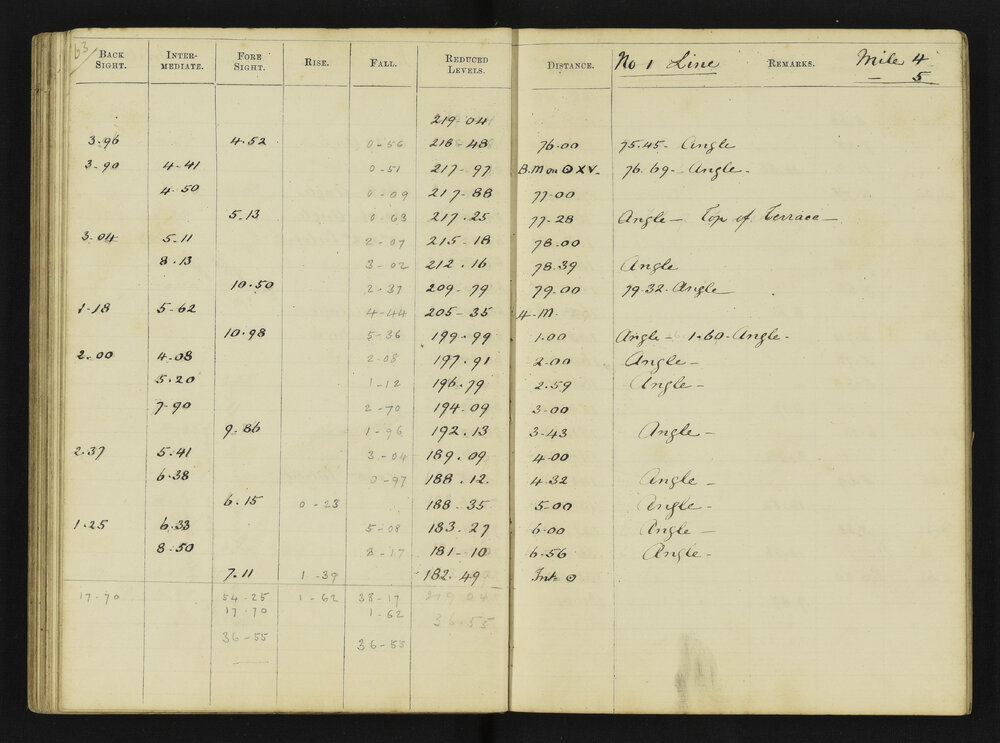 63
BACK SIGHT. INTER-MEDIATE. FORE SIGHT. RISE. FALL. REDUCED LEVELS. DISTANCE. No 1 Line REMARKS. Mile 4
5
219-04
3.96 4.52 0-56 218-48 76-00 75.45- Angle
3-90 4-41 0-51 217-97 B.M on ⊙ XV- 76.69- Angle-
4-50 0-09 217-88 77-00
5-13 0-63 217.25 77-28 Angle- Top of Terrace-
3-04 5-11 2-07 215-18 78-00
8-13 3-02 212.16 78.39 Angle
10-50 2-37 209-79 79-00 79.32-Angle
1-18 5-62 4-44 205-35 4-M
10-98 5-36 199-99 1-00 Angle- 1.60-Angle-
2-00 4-08 2-08 197.91 2-00 Angle-
5-20 1-12 196.79 2.59 Angle-
7-90 2-70 194-09 3-00
9-86 1-96 192.13 3-43 Angle-
2.37 5-41 3-04 189.09 4-00
6-38 0-97 188.12 4.32 Angle-
6.15 0-23 188-35 5-00 Angle-
1.25 6.33 5-08 183.27 6-00 Angle-
8-50 2-17 181-10 6-56 Angle-
7.11 1-39 182-49 Int ⊙
17-70 54-25 1-62 38-17 219 04
17-70 1-62 36-55
36-55 36-55